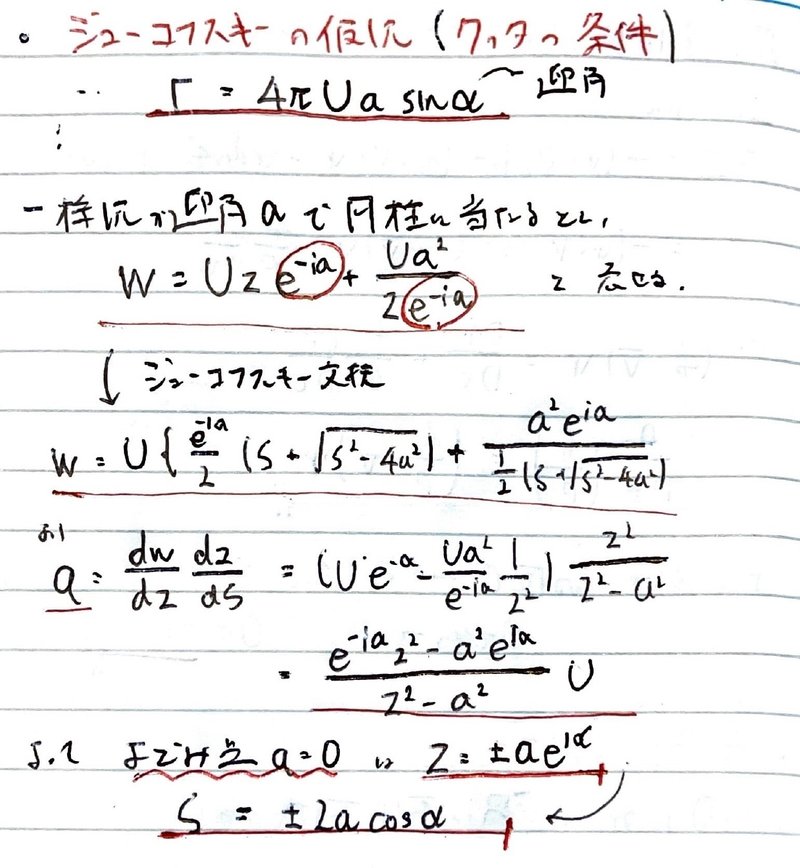 。ジューコフスキーの仮説(クッタの条件)
‥ Γ = 4πUa sinα 〜迎角
:
一様流が迎角αで円柱に当たるとし,
W = Uz e^{-iα} + Ua²/(z e^{-iα}) と表せる.
↓ ジューコフスキー変換
w = U{ e^{-iα}/2 (ζ + √(ζ²-4a²)) + a²e^{iα}/(1/2 (ζ+√(ζ²-4a²))
より
q = dw/dz dz/dζ = (U e^{-α} - Ua²/e^{-iα} 1/z²) z²/(z²-a²)
= (e^{-iα}z² - a²e^{iα})/(z²-a²) U
よって よどみ点 q=0 は z = ±ae^{iα}
ζ = ±2a cosα